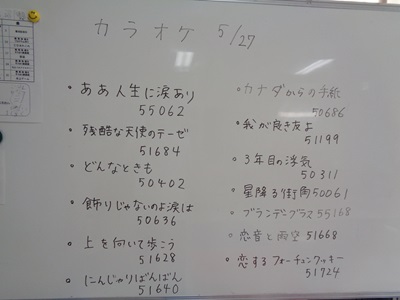 カラオケ 5/27
・ああ人生に涙あり
55062
・残酷な天使のテーゼ
51684
・どんなときも
50402
・飾りじゃないのよ涙は
50636
・上を向いて歩こう
51628
・にんじゃりばんばん
51640
・カナダからの手紙
50686
・我が良き友よ
51199
・3年目の浮気
50311
・星降る街角50061
・ブランデーグラス55168
・恋音と雨空 51668
・恋するフォーチュンクッキー
51724